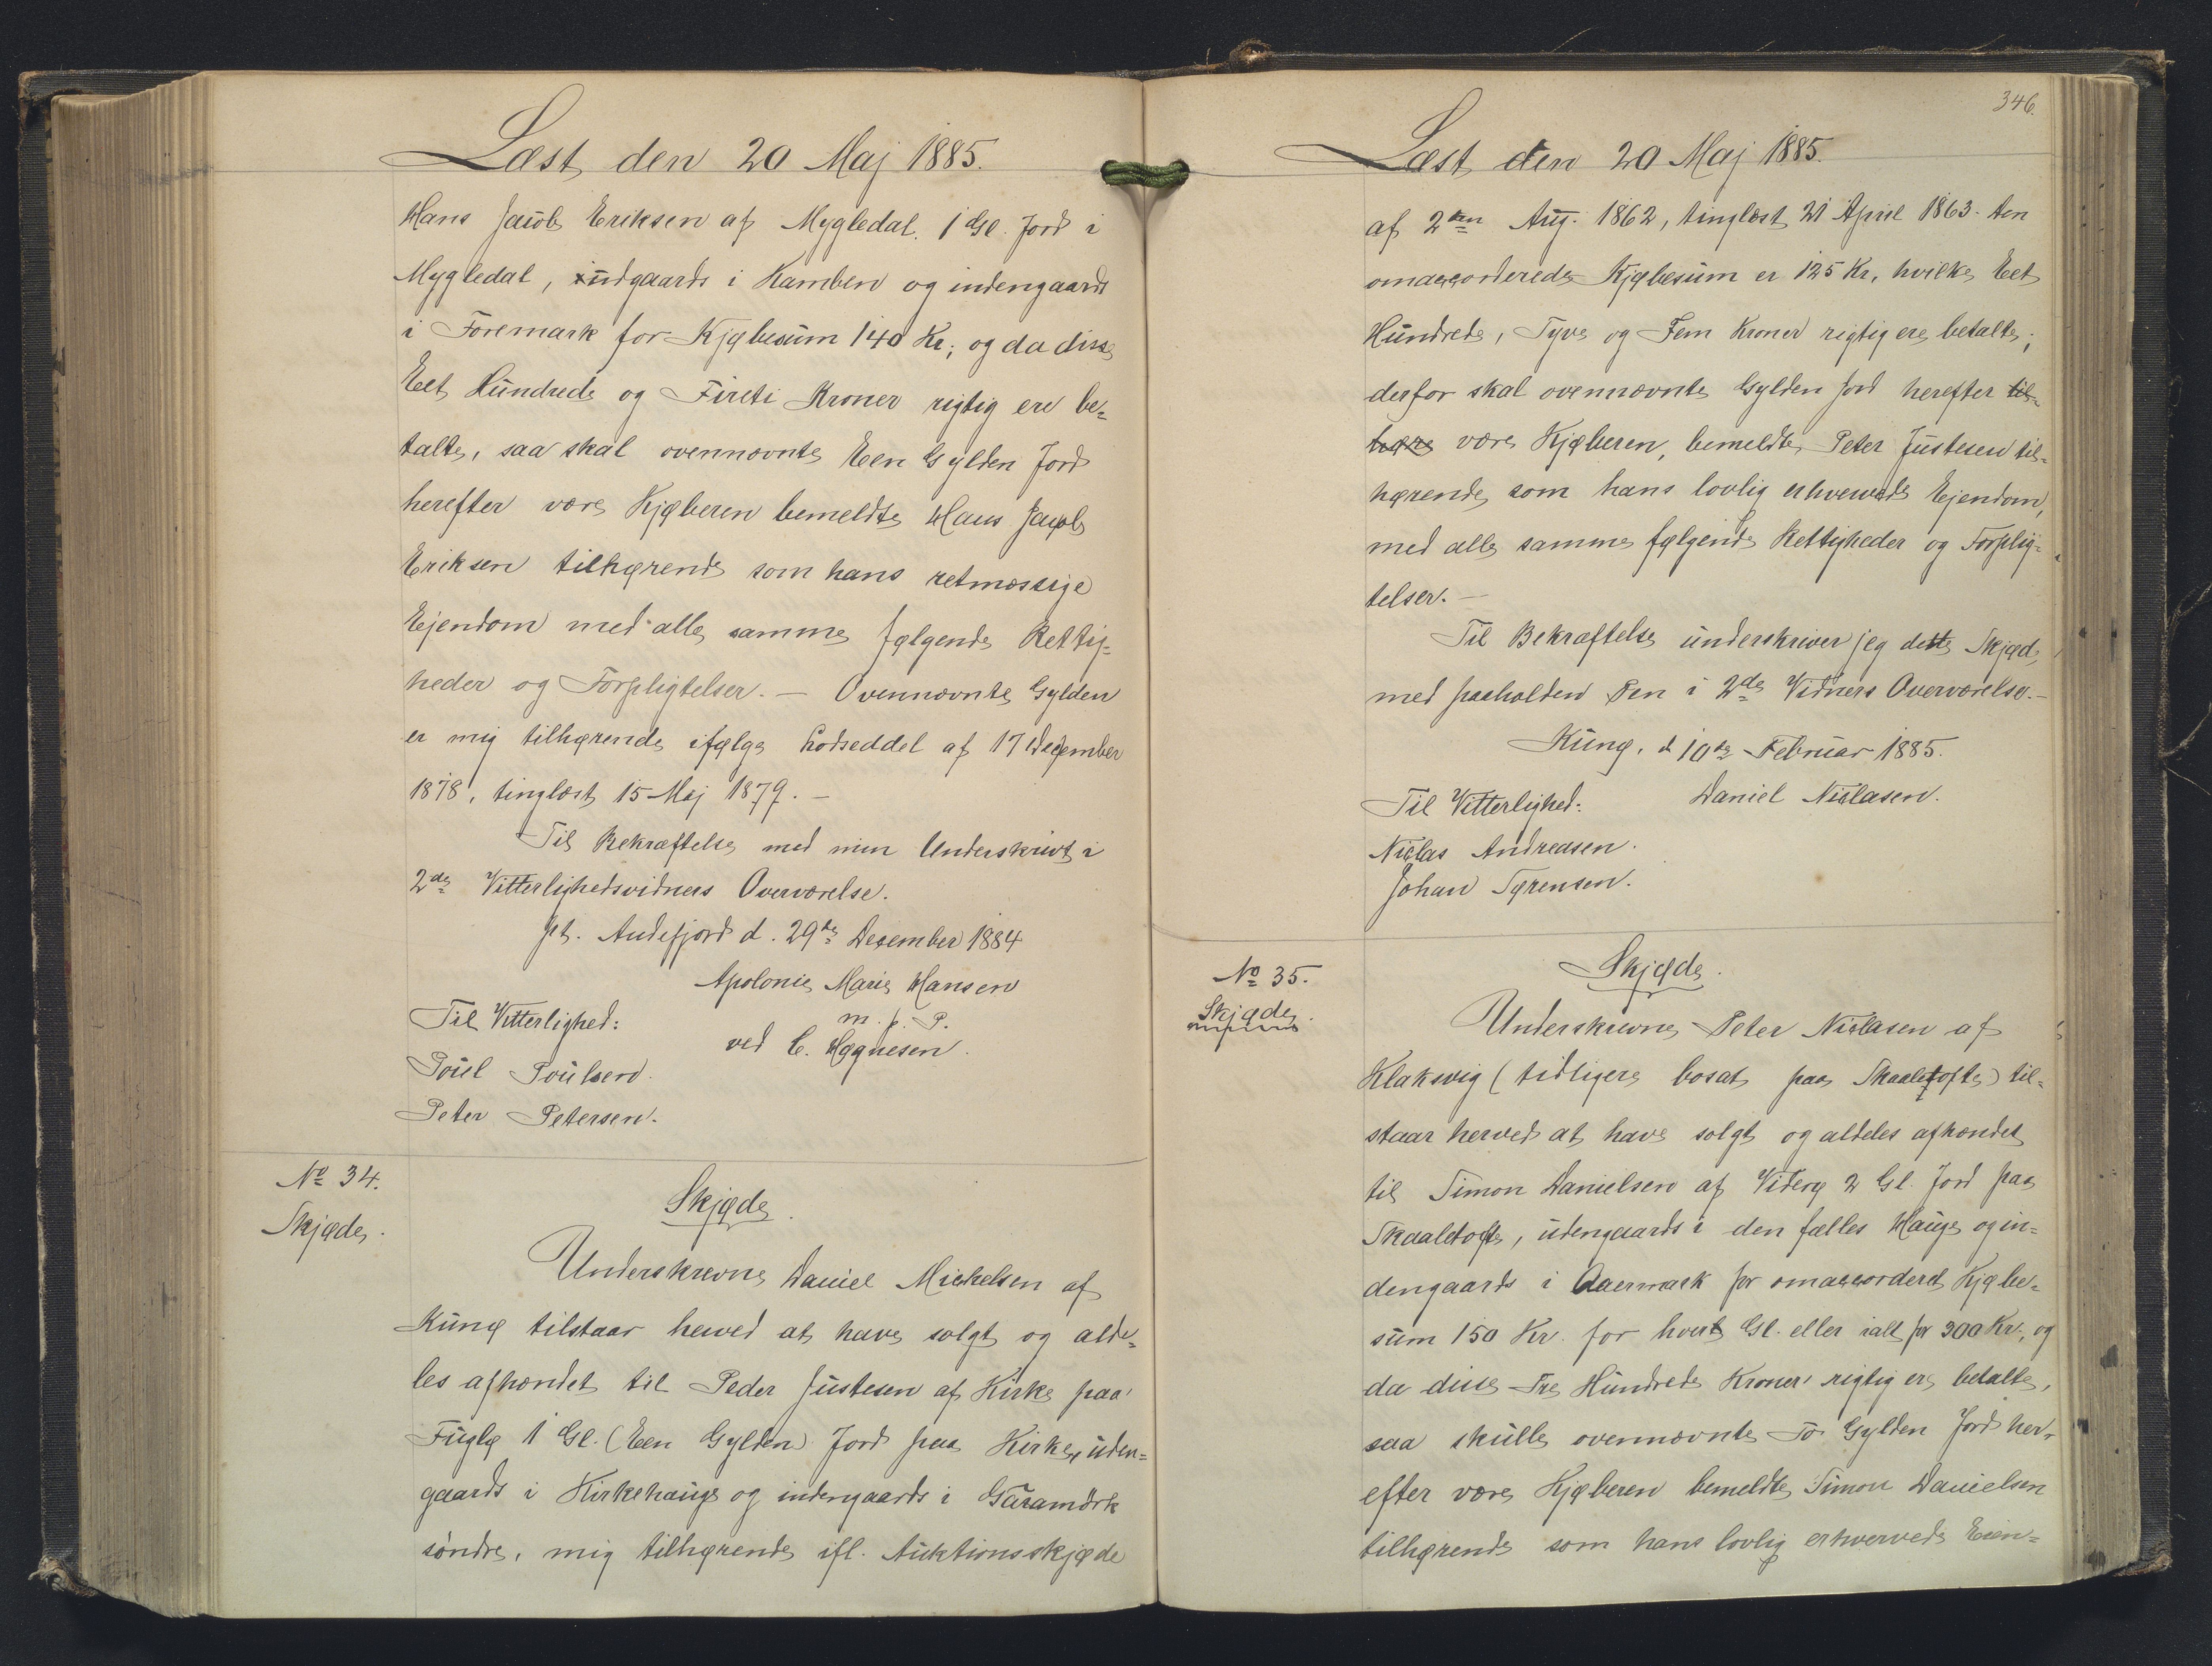 Læst den 20 Maj 1885.
Hans Jacob Eriksen af Mygledal. 1 Gl. Jord i
Mygledal, udgaards i Kamben og indengaards
i Foremark for Kjøbesum 140 Kr; og da disse
Eet Hundrede og Firti Kroner rigtig ere be=
talte, saa skal ovennævnte Een Gylden Jord
herefter være Kjøberen bemeldte Hans Jacob
Eriksen tilhørende som hans retmæssige
Ejendom med alle samme følgende Rettig=
heder og Forpligtelser. — Ovennævnte Gylden
er mig tilhørende ifølge Lodseddel af 17 December
1878, tinglæst 15 Maj 1879. —
Til Bekræftelse med min Underskrivt i
2de Vitterlighedsvidners Overværelse.
pt. Andefjord d. 29de Desember 1884
Apolonie Marie Hansen
m. p. P.
ved C. Høgnesen.
Til Vitterlighed:
Poul Poulsen.
Peter Petersen.
No 34.
Skjøde.
Skjøde.
Underskrevne Daniel Michelsen af
Kunø tilstaar herved at have solgt og alde=
les afhændet til Peder Justesen af Kirke paa
Fuglø 1 Gl. (Een Gylden) Jord paa Kirke, uden=
gaards i Kirkehauge og indengaards i Garamörk
söndre, mig tilhørende ifl. Auktionsskjøde
346.
Læst den 20 Maj 1885.
af 2den Aug. 1862, tinglæst 21 April 1863. Den
omaccorderede Kjøbesum er 125 Kr, hvilke Eet
Hundrede, Tyve og Fem Kroner rigtig ere betalte;
derfor skal ovennævnte Gylden Jord herefter til=
høre være Kjøberen, bemeldte Peter Justesen til=
hørende som hans lovlig erhvervede Ejendom,
med alle samme følgende Rettigheder og Forplig=
telser. —
Til Bekræftelse underskriver jeg dette Skjød,
med paaholden Pen i 2de Vidners Overværelse. —
Kunø, d 10de Februar 1885.
Daniel Niclasen.
Til Vitterlighed:
Niclas Andreasen.
Johan Sørensen.
No 35.
Skjøde.
Skjøde.
Underskrevne Peter Niclasen af
Klaksvig (tidligere bosat paa Skaaletofte) til=
staar herved at have solgt og aldeles afhændet
til Simon Danielsen af Viderø 2 Gl. Jord paa
Skaaletofte, udengaards i den fælles Hauge og in=
dengaards i Aaermark for omaccorderet Kjøbe=
sum 150 Kr. for hvert Gl. eller ialt for 300 Kr., og
da disse Tre Hundrede Kroner rigtig ere betalte,
saa skulle ovennævnte To Gylden Jord her=
efter være Kjøberen bemeldte Simon Danielsen
tilhørende som hans lovlig erhvervede Eien=